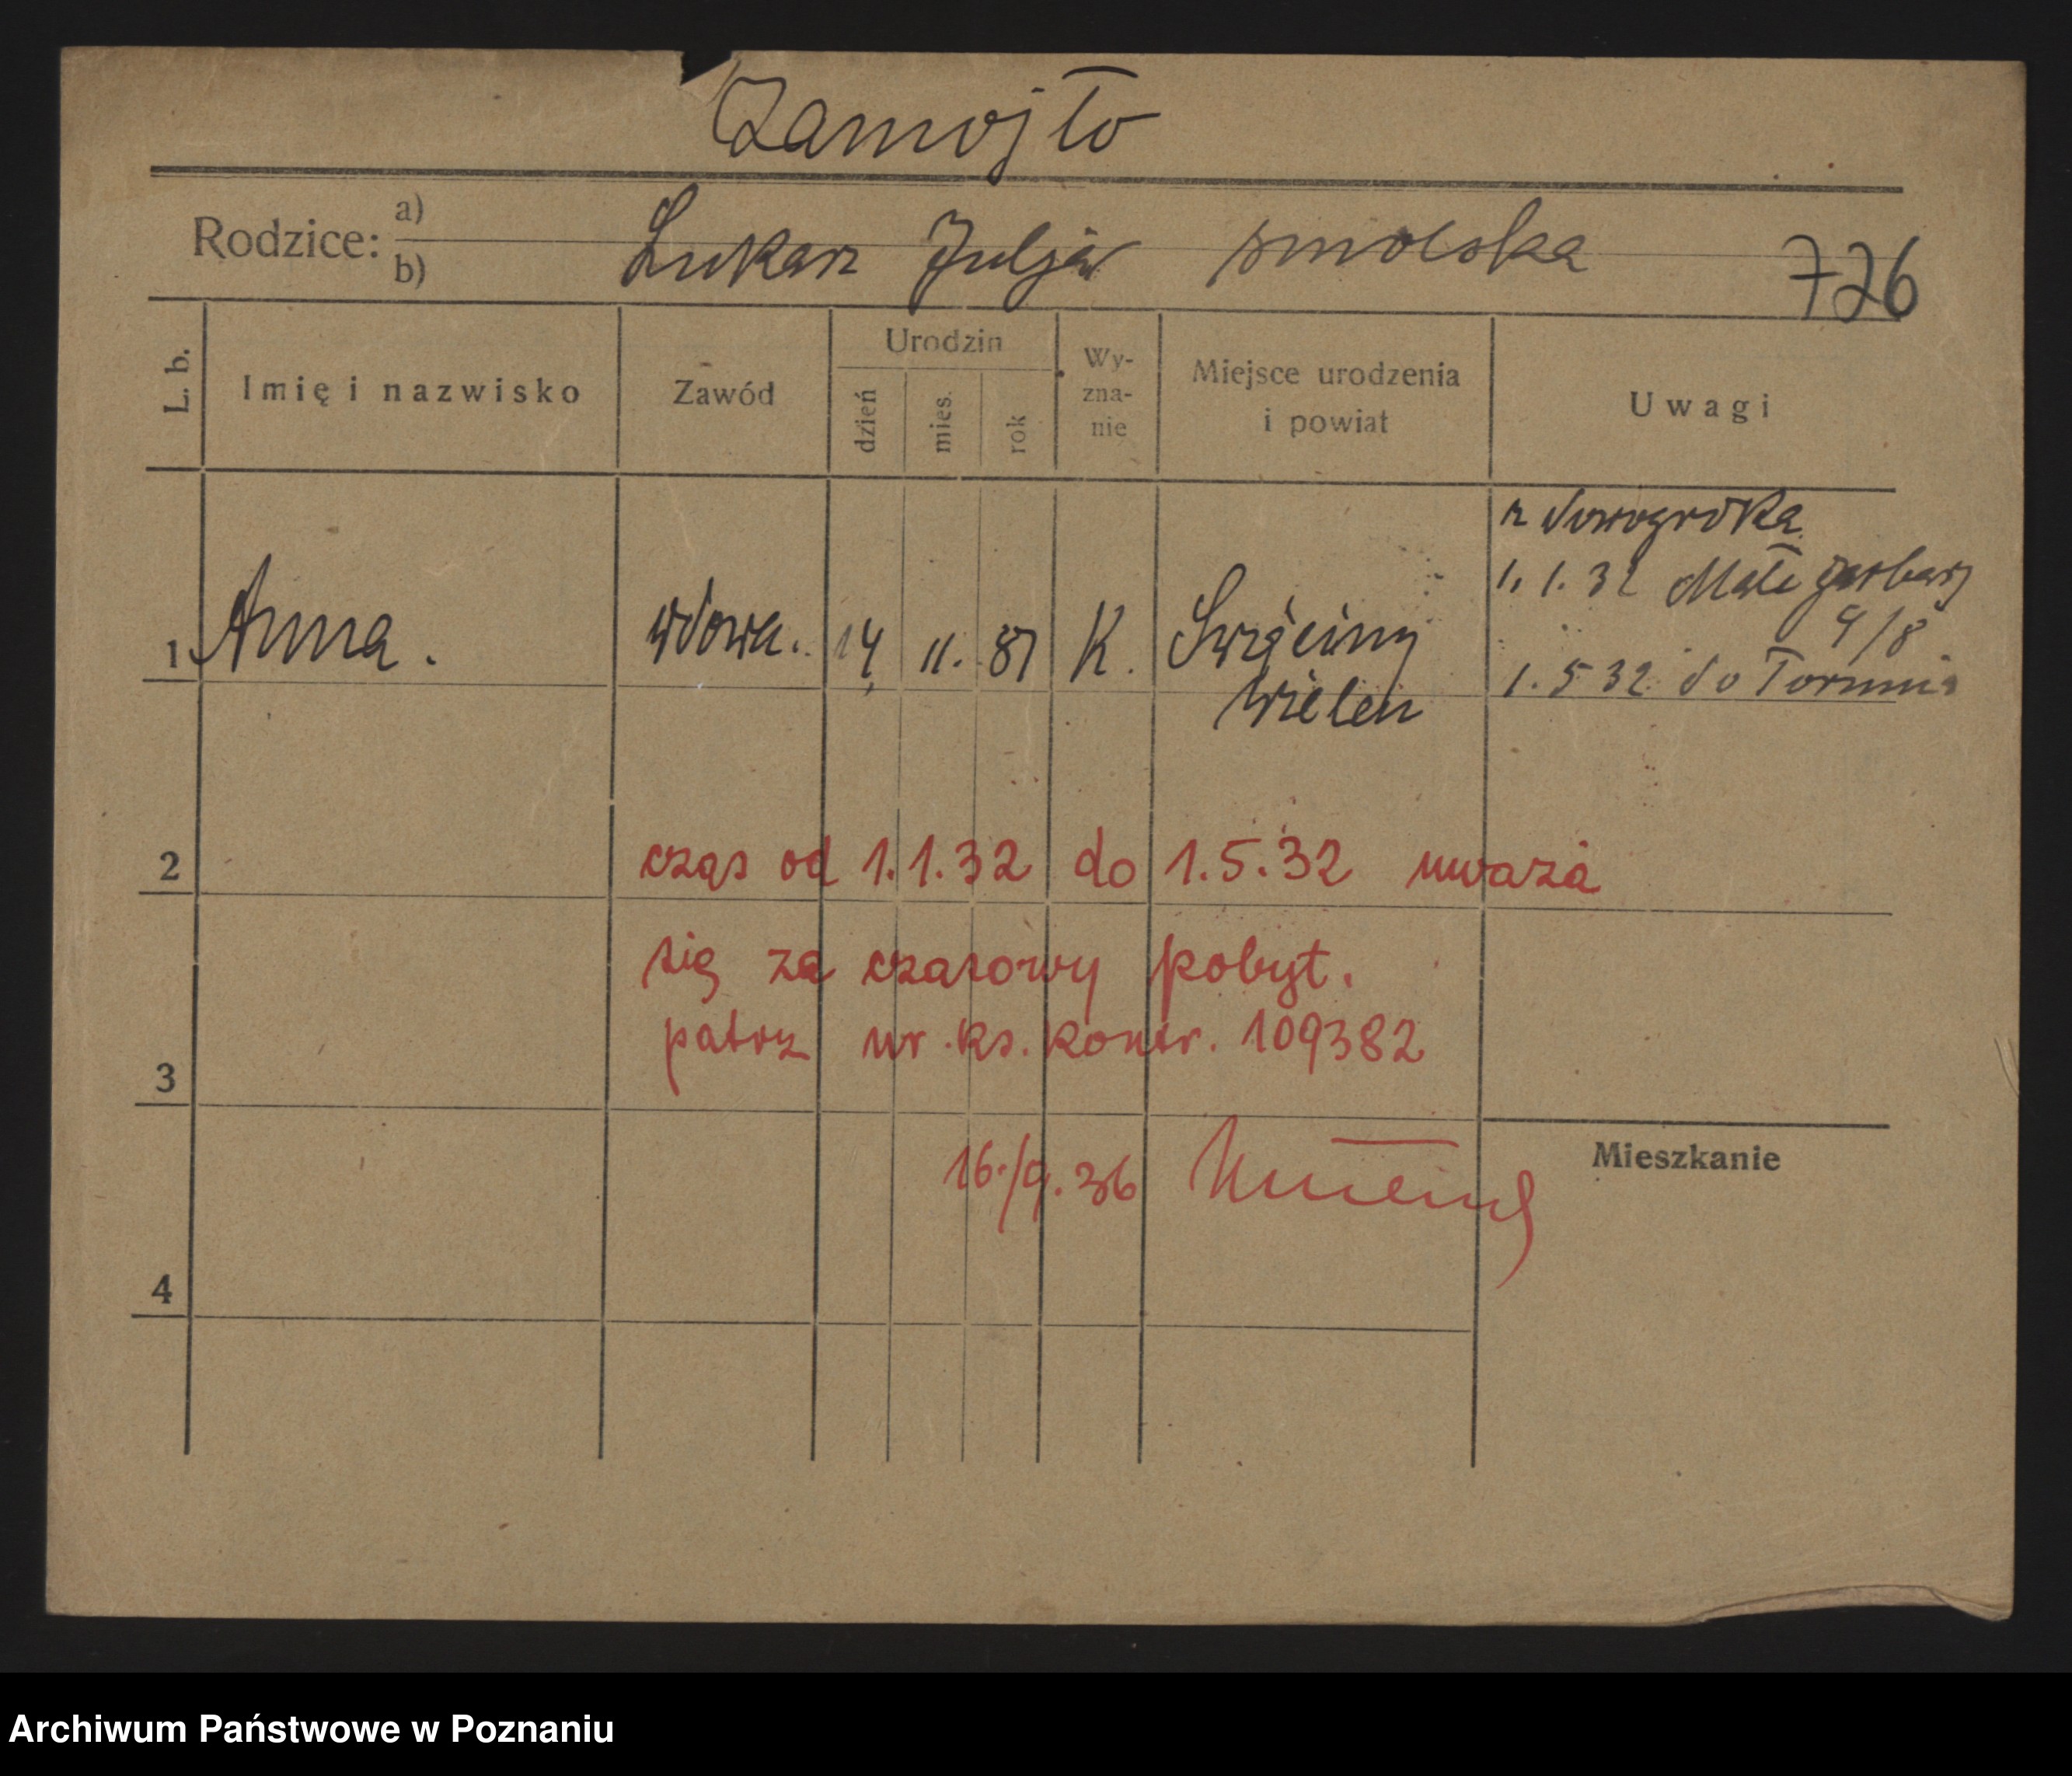 Zamojło
Rodzice: a)
b) Łukasz Julja smolska
726
L. b.
Imię i nazwisko
Zawód
Urodzin
dzień
mies.
rok
Wy-
zna-
nie
Miejsce urodzenia
i powiat
Uwagi
1 Anna. wdowa. 14 11. 87 K.
Wieleń
z Nowogródka
1. 1. 32 Małe Garbary
9/8
1. 5 32 do Torunia
2
czas od 1.1.32 do 1.5.32 uważa
się za czasowy pobyt.
3
patrz nr. ks. kontr. 109382
16./9. 36
Mieszkanie
4
Archiwum Państwowe w Poznaniu